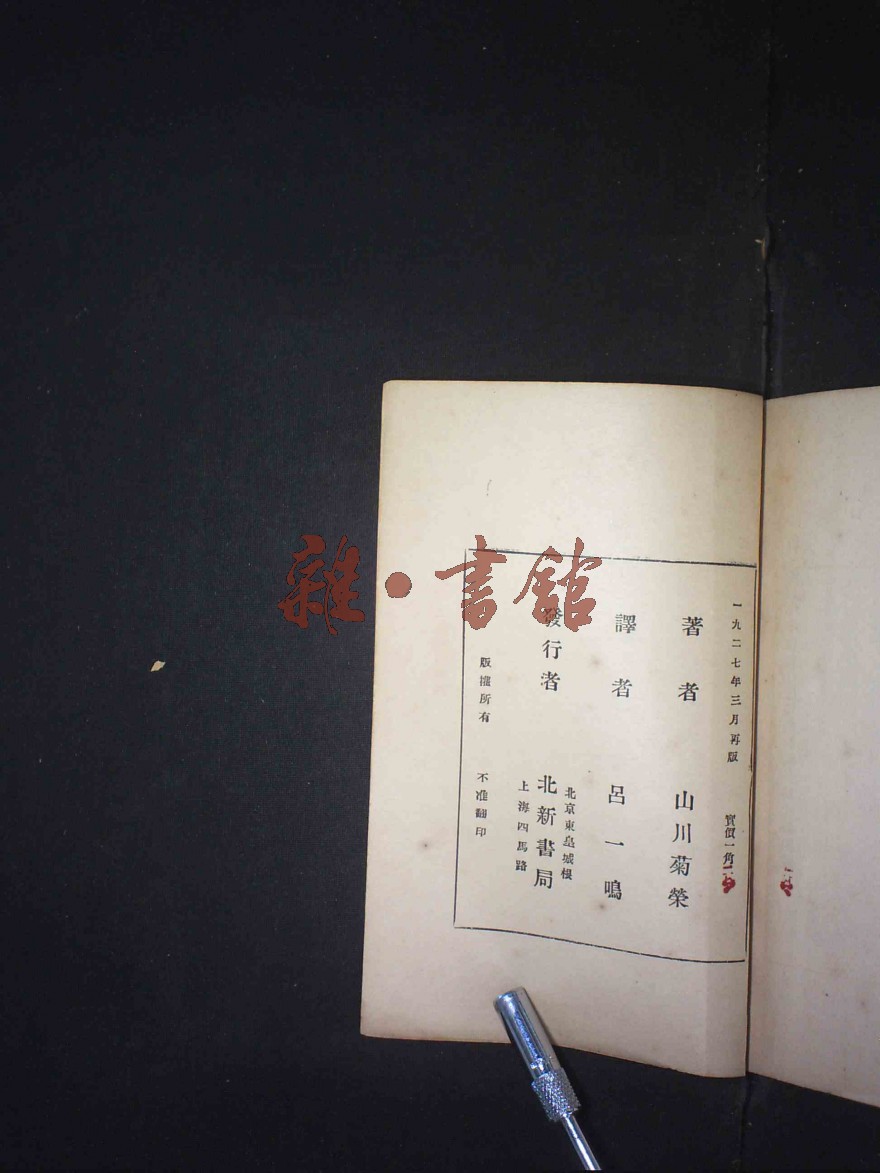 雜·書館
一九二七年三月再版 實價一角
著者 山川菊榮
譯者 呂一鳴
發行者 北新書局
北京東皇城根
上海四馬路
版權所有 不准翻印